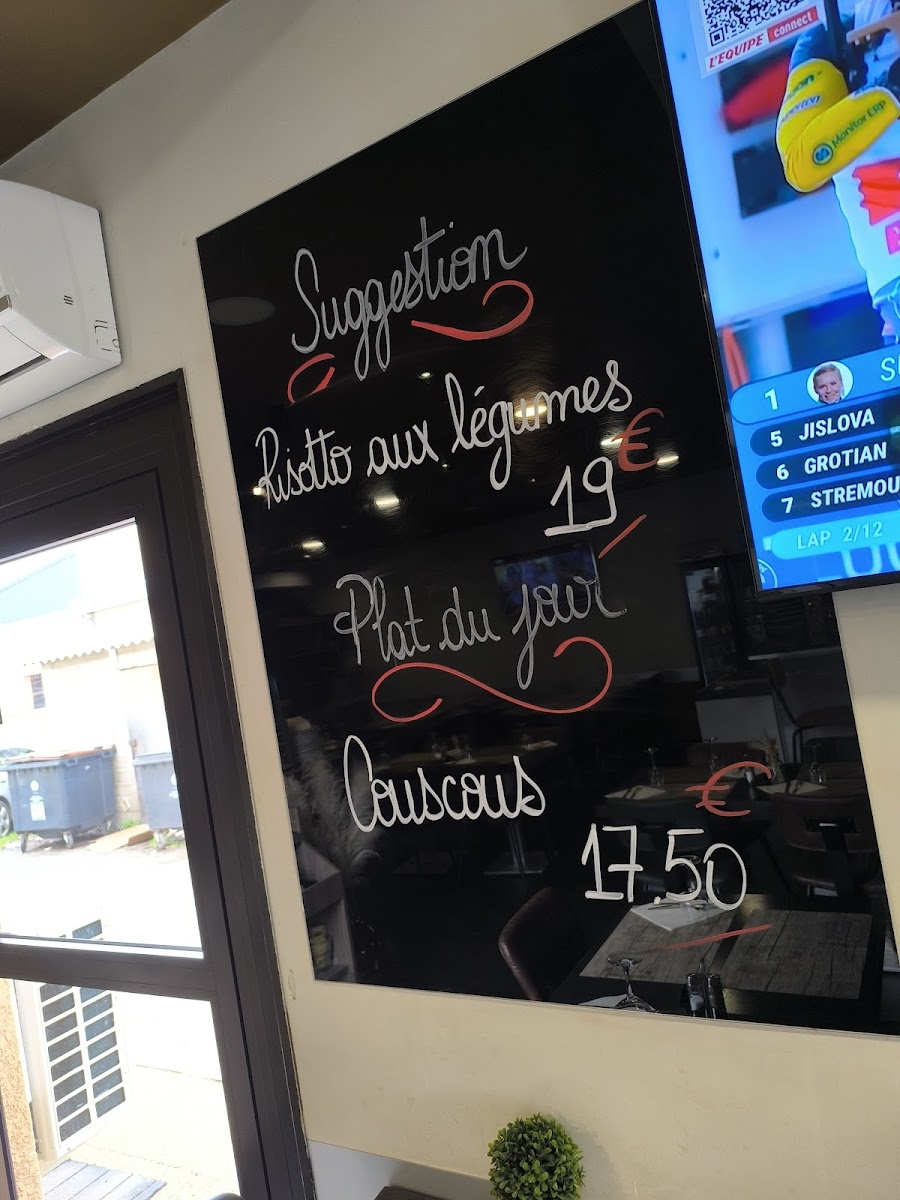 Suggestion
Risotto aux légumes
19€
Plat du jour
Couscous
17.50€
L'EQUIPE connect
Monitor ERP
1
5 JISLOVA
6 GROTIAN
7 STREMOU
LAP 2/12